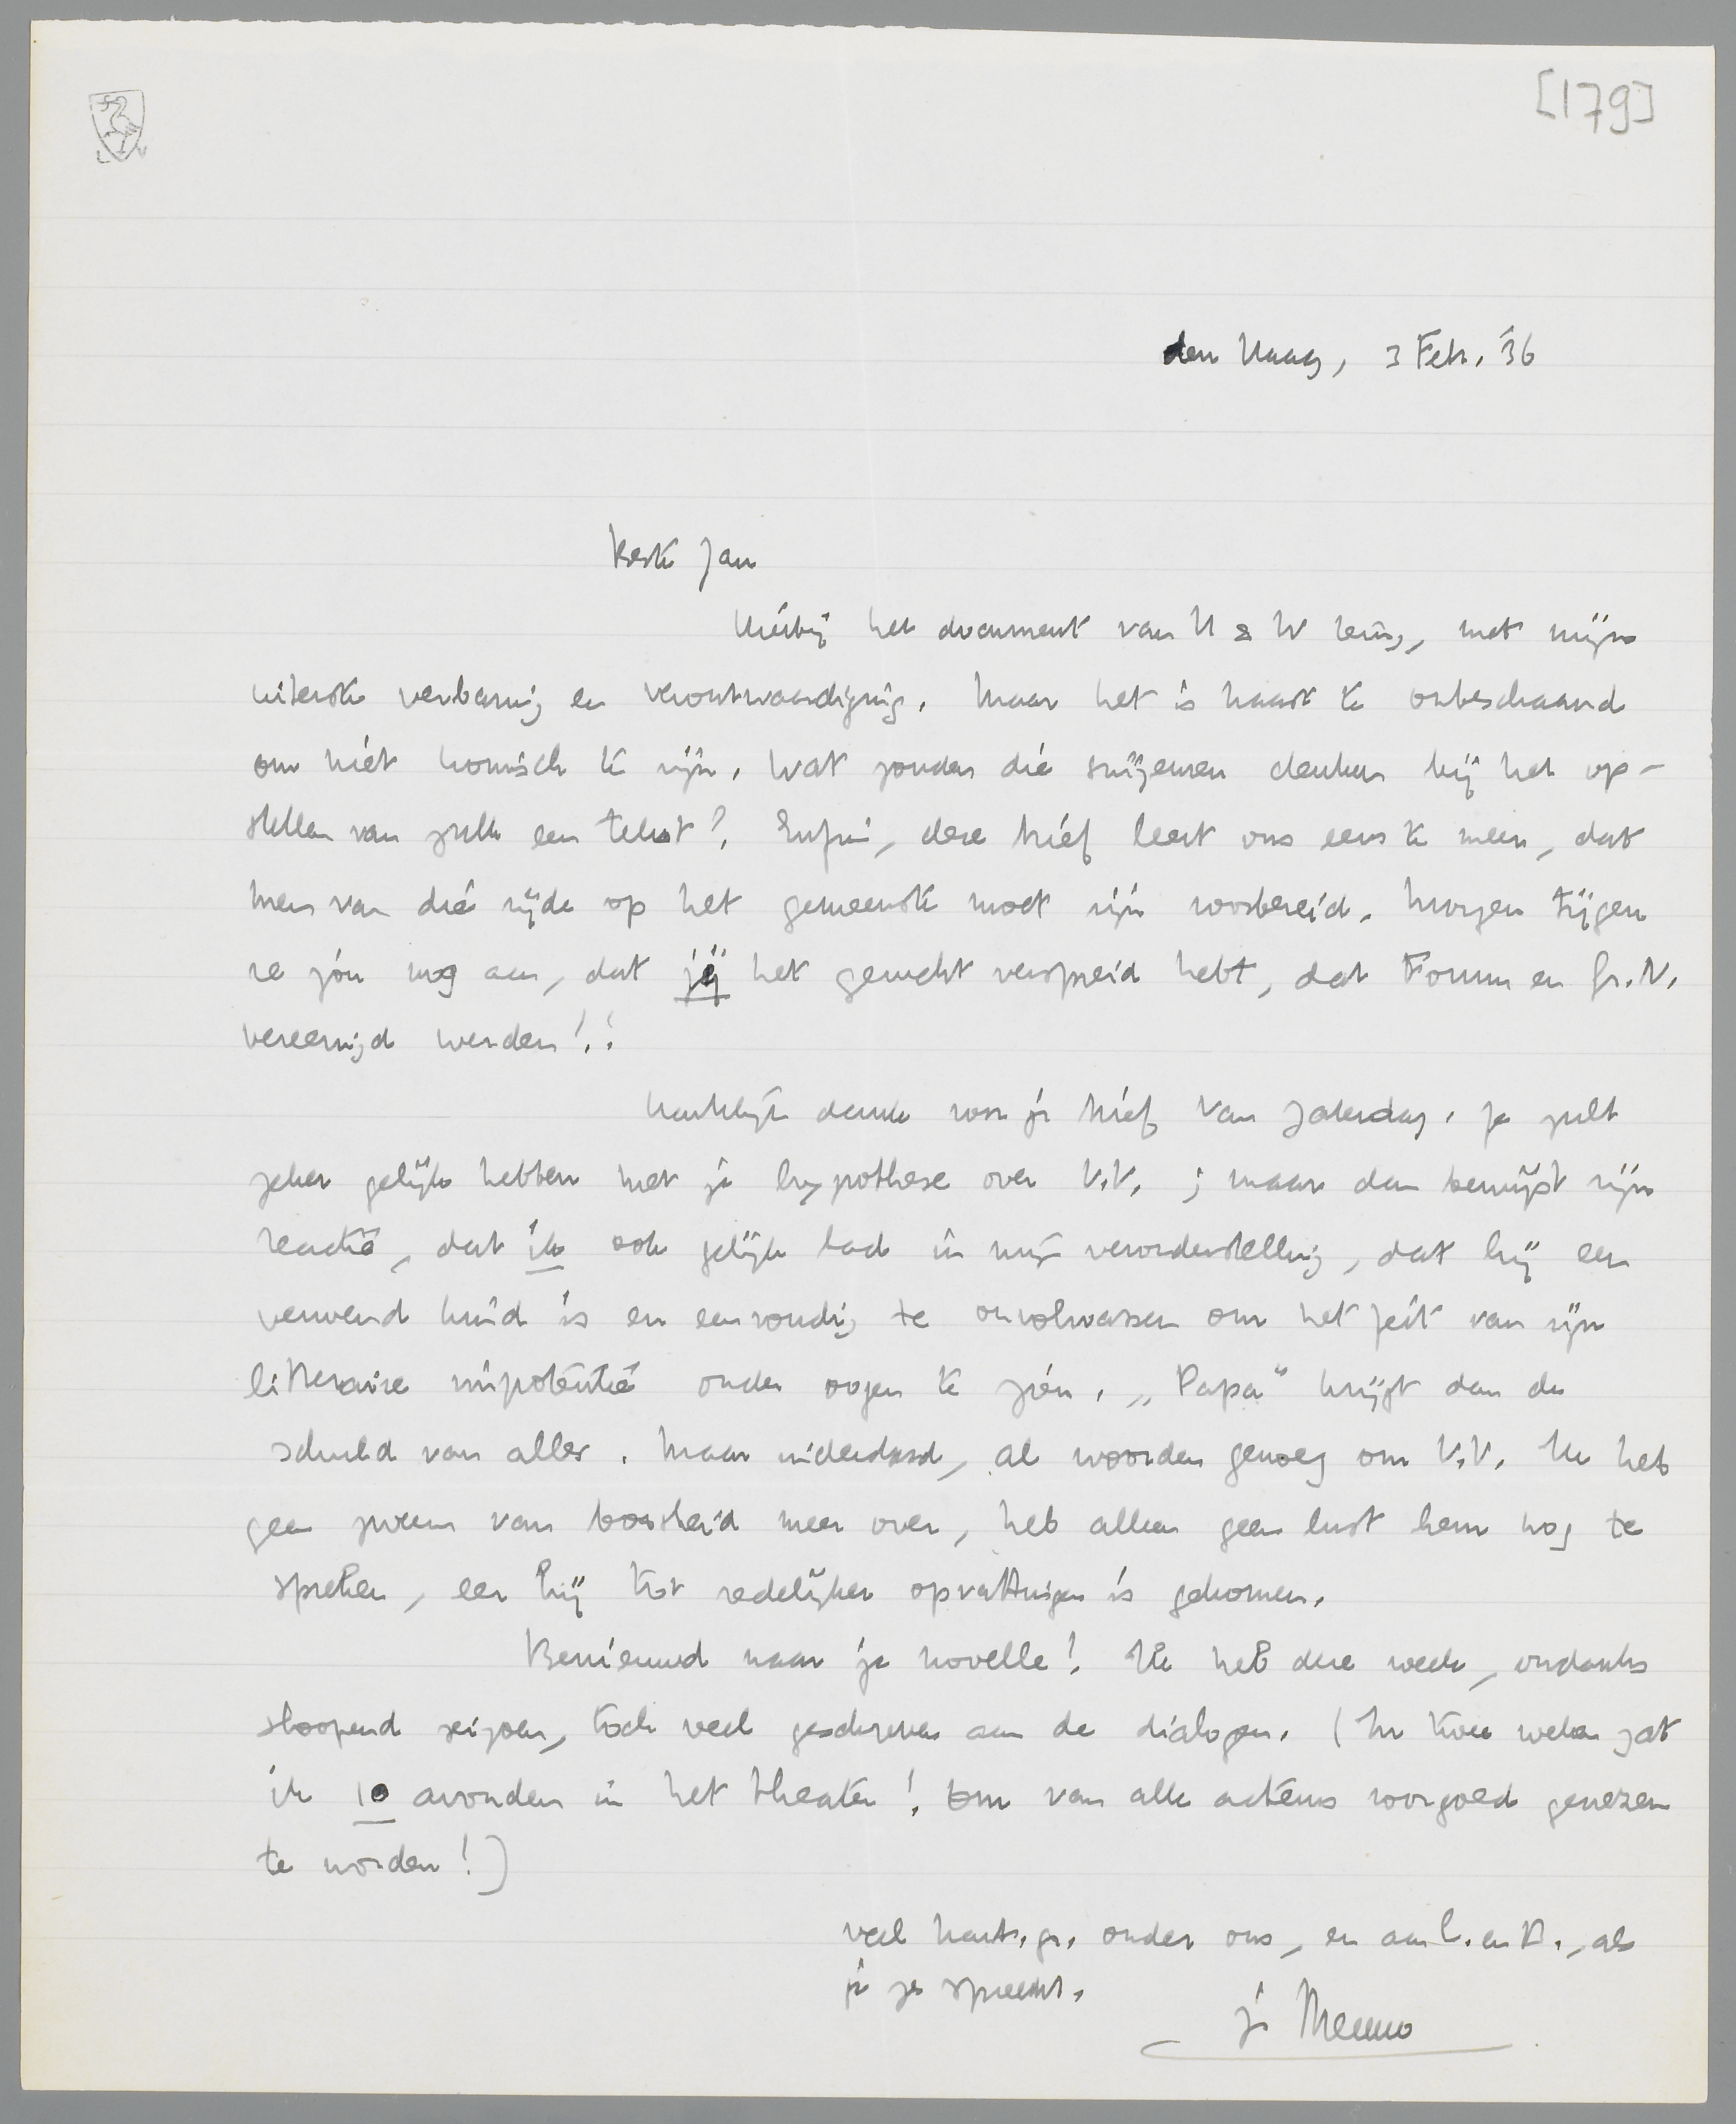 [179]
den Haag, 3 Febr. '36
Beste Jan
Hierbij het document van H & W terug, met mijn
uiterste verbazing en verontwaardiging. Maar het is haast te onbeschaamd
om niet komisch te zijn. Wat zouden die smijeren denken bij het op-
stellen van zulk een tekst? Enfin, deze brief leert ons eens te meer, dat
men van die zijde op het gemeenste moet zijn voorbereid. Morgen tijgen
ze jou nog aan, dat jij het gerucht verspreid hebt, dat Forum en Gr. N.
vereenigd werden!!
Hartelijk dank voor je brief van Zaterdag. Je zult
zeker gelijk hebben met je hypothese over V.V. ; maar dan bewijst zijn
reactie, dat ik ook gelijk had in mijn veronderstelling, dat hij een
verwend kind is en eenvoudig te onvolwassen om het feit van zijn
litteraire impotentie onder oogen te zien. „Papa" krijgt dan de
schuld van alles. Maar inderdaad, al woorden genoeg om V.V. Ik heb
geen zweem van boosheid meer over, heb alleen geen lust hem nog te
spreken, eer hij tot redelijker opvattingen is gekomen.
Benieuwd naar je novelle! Ik heb deze week, ondanks
sloopend seizoen, toch veel geschreven aan de dialogen. (In twee weken zat
ik 10 avonden in het theater! Om van alle acteurs voorgoed genezen
te worden!)
veel harts. gr. onder ons, en aan C. en A., als
je ze spreekt.
je Menno